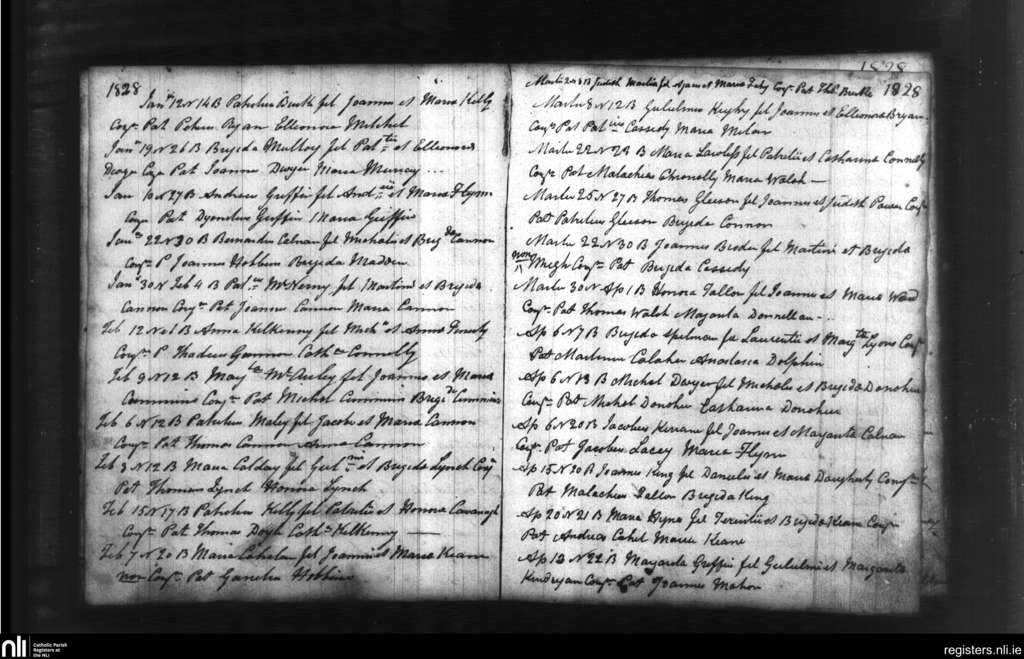 1828
Janry 12 N 14 B Patritius Burk fil Joannis et Maria Kelly
Conj. Pat. Petrus Ryan Elleonora Mitchel
Janry 19 N 26 B Brigida Mulloy fil Pattii et Elleonora
Dwyer Conj Pat Joannes Dwyer Maria Murray ...
Jan 10 N 27 B Andreas Griffin fil et Maria Flynn
Conj Pat Dyonitius Griffin Maria Griffin
Janry 22 N 30 B Bernardus Calnan fil Micholis et Brigda Cannon
Conj P Joannes Hobbins Brigida Madden
Janry 30 N Feb 4 B Mc Nerny fil Martini et Brigida
Cannon Conj Pat Joannes Cannon Maria Cannon
Feb 12 N et B Anna Kilkenny fil Michs et Anna
Conj P Thadeus Gannon Cathna Connolly
Feb 9 N 12 B Mc fil Joannis et Maria
Commins Conj Pat Michol Commins Commins
Feb 6 N 12 B Patritius Maley fil Jacobi et Maria Cannon
Conj Pat Thomas Cannon Anna Cannon
Feb 3 N 12 B Maria Colday fil et Brigida Lynch Conj
Pat Thomas Lynch Honora Lynch
Feb 15 N 17 B Patritius Kelly fil Patritii et Honora Cavanagh
Conj Pat Thomas Doyle Cathna Kilkenny —
Feb 7 N 20 B Maria fil Joannis et Maria Keane
non Conj Pat Hobbins
1828
1828
Martii 2 N 8 B Judith Martin fil et Maria Fahy Conj Pat Burke
Martii 8 N 12 B Gulielmus fil Joannis et Elleonora Bryan
Conj Pat Cassidy Maria
Martii 22 N 23 B Maria Lawless fil Patritii et Catharina Connolly
Conj Pat Malachias Maria Walsh —
Martii 25 N 27 B Thomas Gleeson fil Joannis et Judith Power Conj
Pat Patritius Gleeson Brigida Connon
Martii 22 N 30 B Joannes fil Martini et Brigida
non
Conj Pat Brigida Cassidy
Martii 30 N Ap 1 B Honora Fallon fil Joannis et Maria Ward
Conj Pat Thomas Walsh Donnellan - ..
Ap 6 N 7 B Brigida Spelman fil Laurentii et Lyons Conj
Pat Martinus Anastasia Dolphin
Ap 6 N 13 B Michol Dwyer fil Micholis et Brigida Donohue
Conj Pat Michol Donohue Catharina Donohue
Ap 6 N 20 B Jacobus Kirrane fil Joannis et Margarita Calnan
Conj Pat Jacobus Lacey Maria Flynn
Ap 15 N 20 B Joannes King fil Danielis et Maria Conj
Pat Malachias Fallon Brigida King
Ap 20 N 21 B Maria fil et Brigida Keane Conj
Pat Andreas Cahel Maria Keane
Ap 13 N 22 B Margarita Griffin fil Gulielmi et Margarita
Conj Pat Joannes Mahon
nli
Catholic Parish
Registers at
the NLI
registers.nli.ie